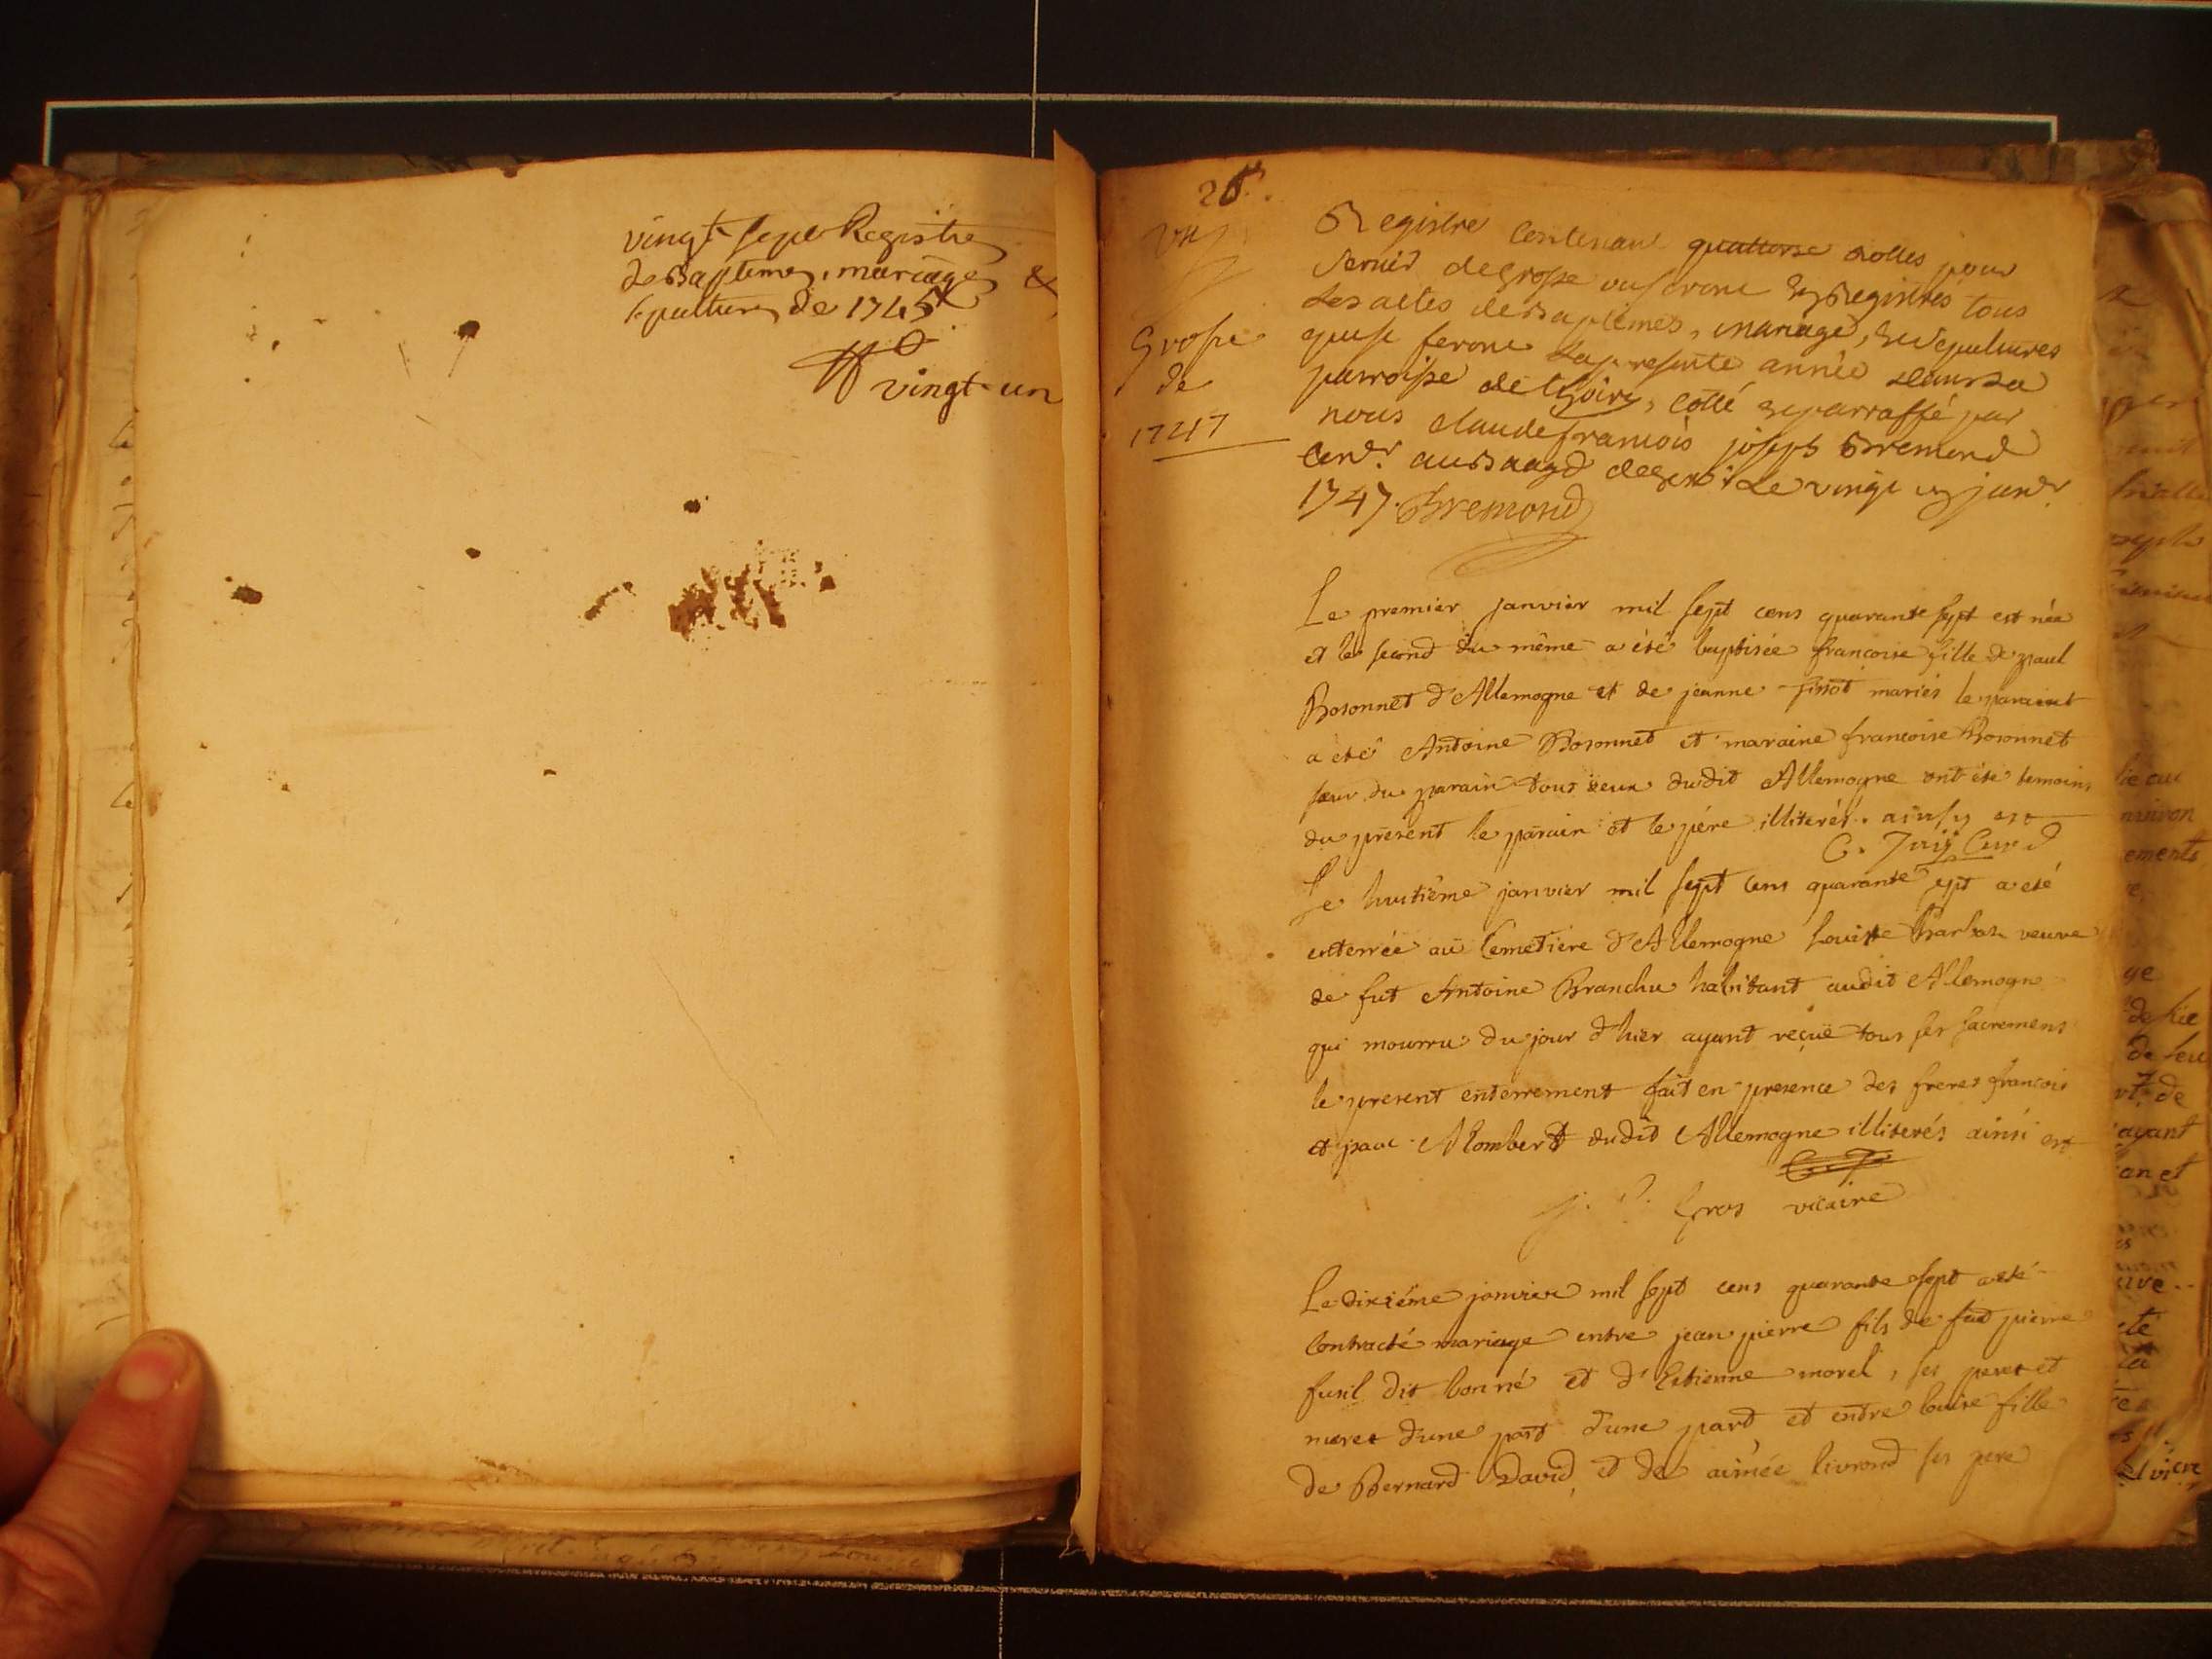 vingt sept Registre
de Baptemes, mariages &
sepultures de 1745
vingt un
28
un
Grosse
de
1747
Registre Contenant quattorse rolles pour
servir de Grosse ou seront Enregistrés tous
Les actes de Baptemes, mariage, Et sepultures
qui se feront La presente année dans La
parroisse de thoiry, cotté et parraffé par
nous claude françois joseph Bremond
au Baagé de Gex Le vingt un janr
1747. Bremond
Le premier janvier mil sept cens quarante sept est née
et le second du même a été baptisée francoise fille de paul
Bosonnet d'Allemogne et de jeanne mariés le parain
a été Antoine Bosonnet et maraine francoise Bosonnet
sœur du parain tous deux dudit Allemogne ont été temoins
du present le parain et le père illiterés. ainsy est
C. Curé
Le huitième janvier mil sept cens quarante sept a été
enterrée au Cemetière d'Allemogne Louise veuve
de fut Antoine Branchu habitant audit Allemogne
qui mourru du jour d'hier ayant reçüe tous ses sacremens
le present enterrement fait en presence des freres francois
et paul Alombert dudit Allemogne illiterés ainsi est
j. Gros vicaire
Le dixième janvier mil sept cens quarante sept a eté
Contracté mariage entre jean pierre fils de fut pierre
fusil dit bonné et d'Estienne morel, ses peres et
meres d'une part d'une part et entre louise fille
de Bernard David et de aimée livrond ses pere